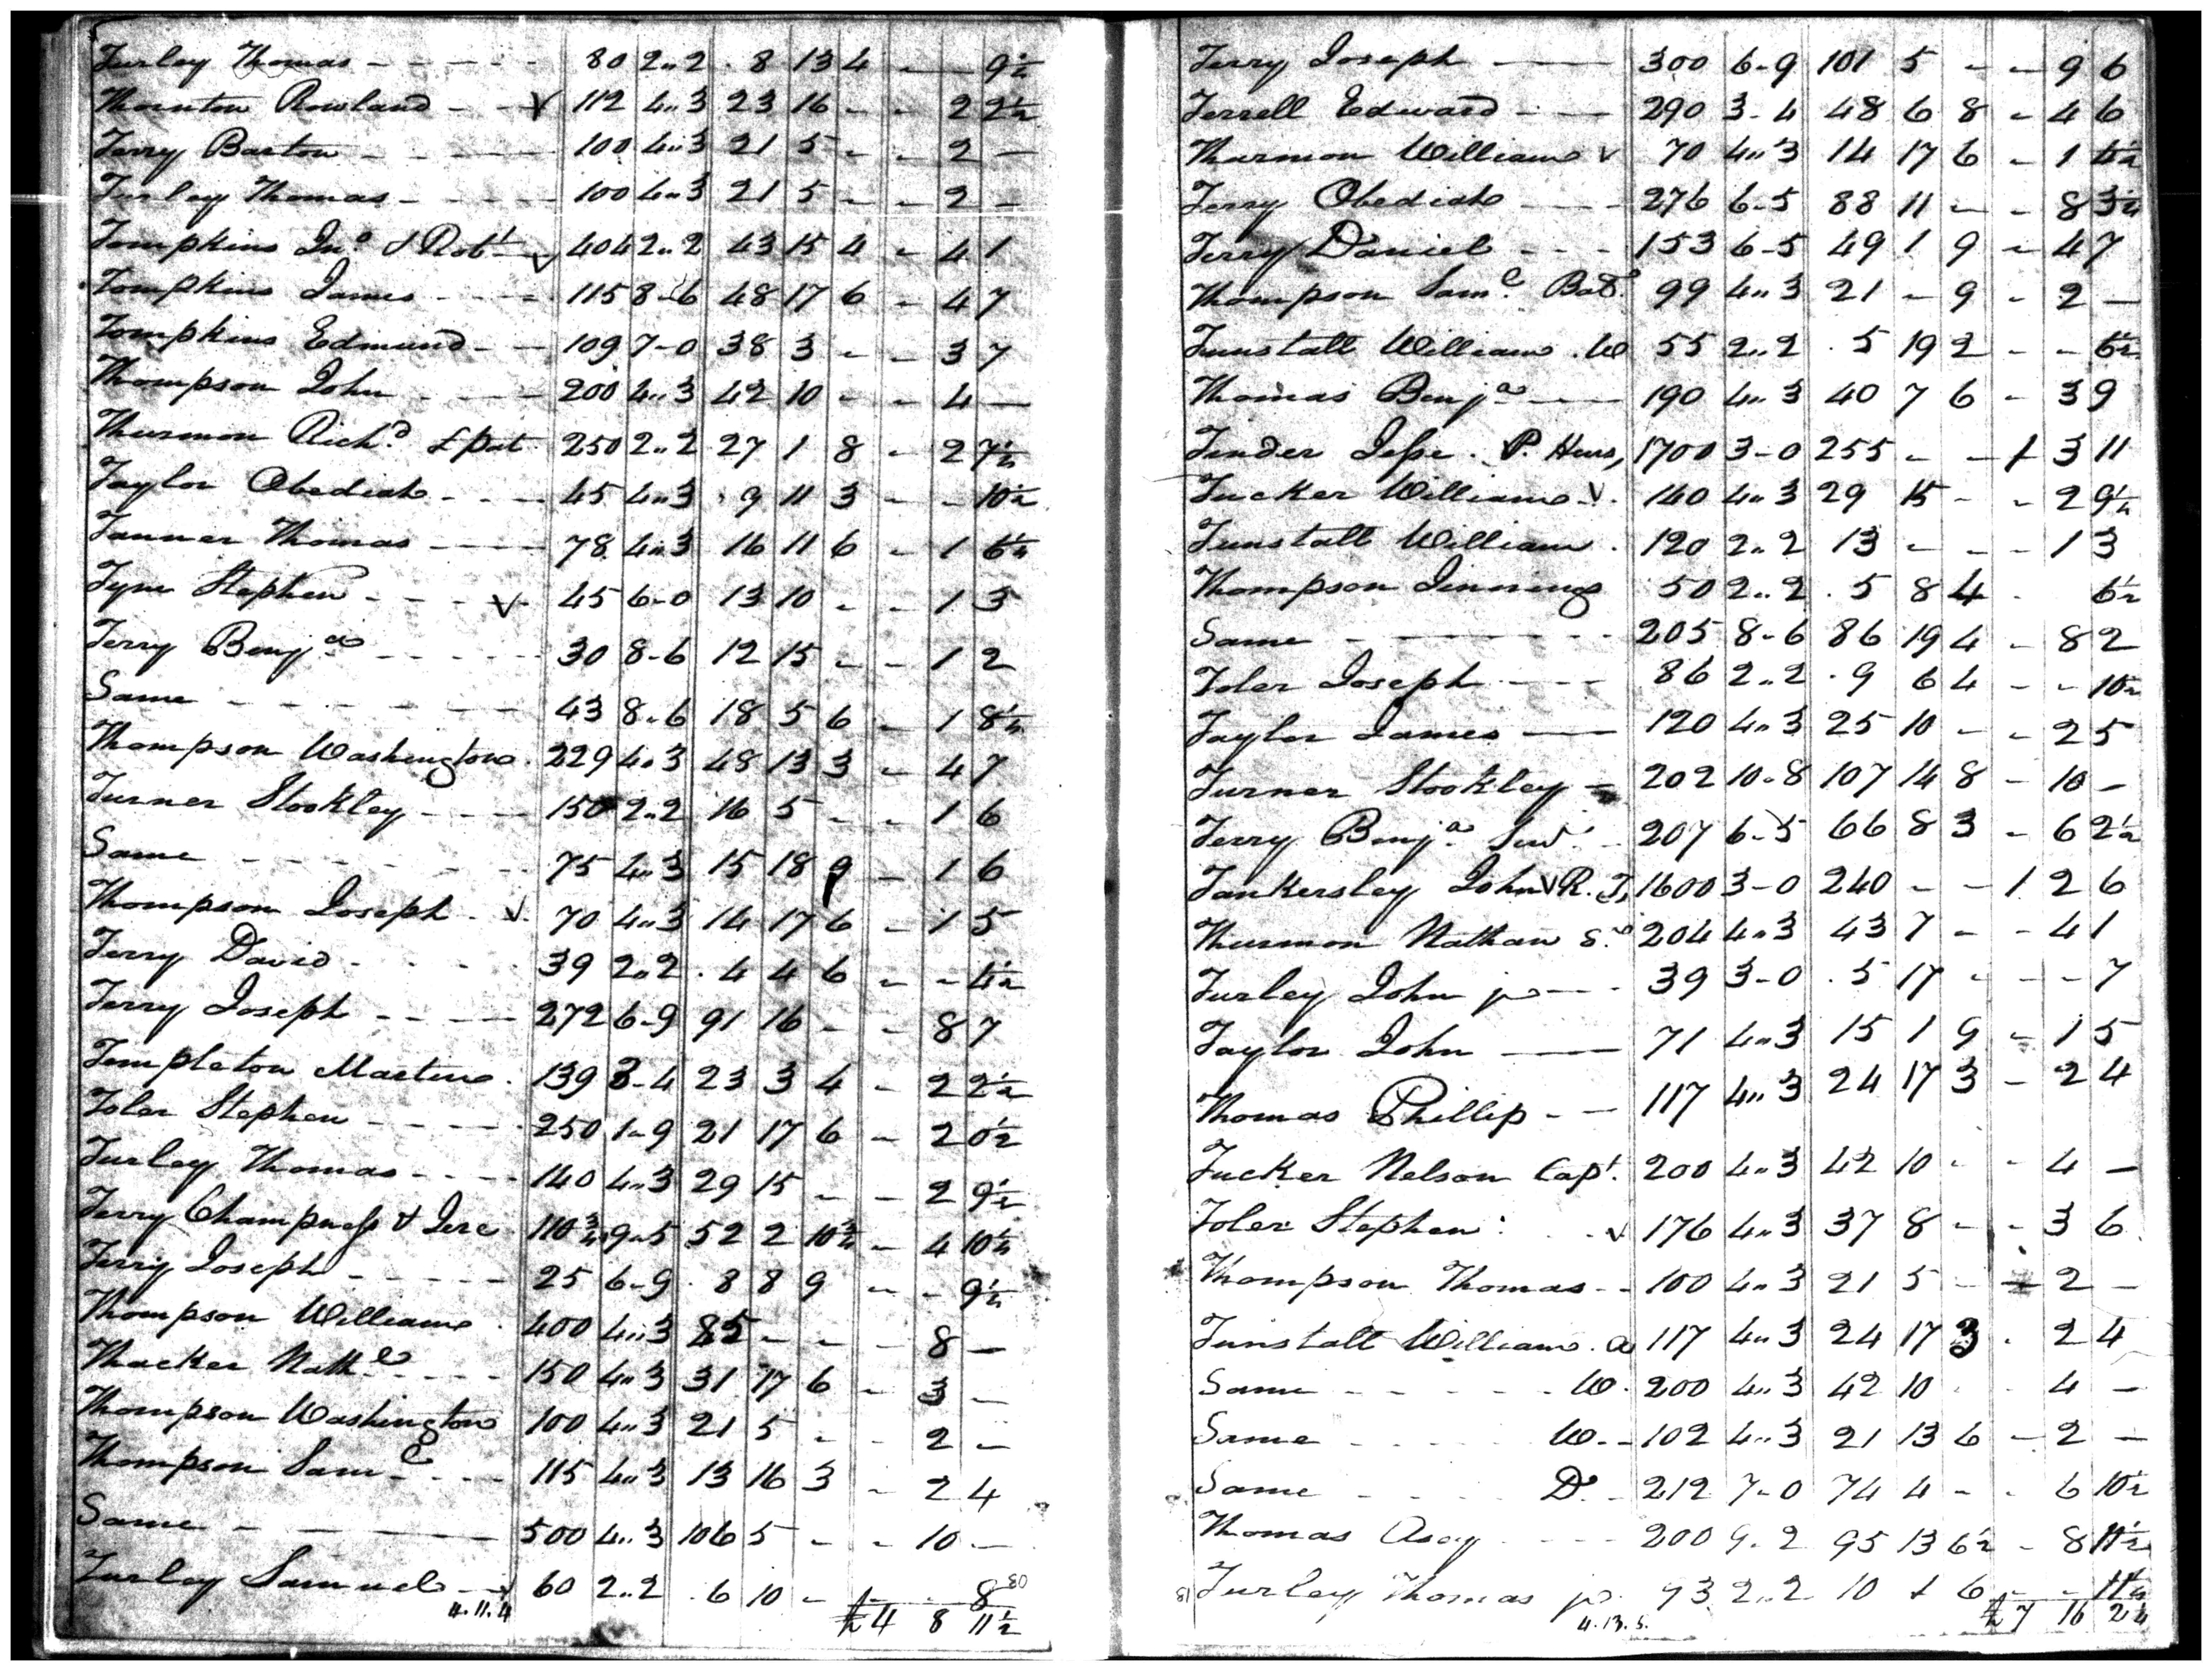 Turley Thomas - - - - 80 2..2 . 8 13 4 - - 9½
Thornton Rowland - - V 112 4..3 23 16 - - 2 2½
Terry Barton - - - - 100 4..3 21 5 - - 2 -
Turley Thomas - - - - 100 4..3 21 5 - - 2 -
Tompkins Jno & Robt - V 404 2..2 43 15 4 - 4 1
Tompkins James - - - - 115 8-6 48 17 6 - 4 7
Tompkins Edmund - - 109 7-0 38 3 - - 3 7
Thompson John - - - - 200 4..3 42 10 - - 4 -
Thurmon Richd £pat 250 2..2 27 1 8 - 2 7½
Taylor Obediah - - - 45 4..3 . 9 11 3 - - 10½
Tanner Thomas - - - 78 4..3 16 11 6 - 1 6¼
Tym Stephen - - - V 45 6-0 13 10 - - 1 3
Terry Benja - - - - 30 8-6 12 15 - - 1 2
Same - - - - - 43 8-6 18 5 6 - 1 8¼
Thompson Washington 229 4..3 48 13 3 - 4 7
Turner Stokley - - - 150 2..2 16 5 - - 1 6
Same - - - - - 75 4..3 15 18 9 - 1 6
Thompson Joseph - V 70 4..3 14 17 6 - 1 5
Terry David - - - - 39 2..2 . 4 4 6 - - 4½
Terry Joseph - - - - 272 6-9 91 16 - - 8 7
Templeton Martin 139 3-4 23 3 4 - 2 2½
Toler Stephen - - - - 250 1-9 21 17 6 - 2 0½
Turley Thomas - - - - 140 4..3 29 15 - - 2 9½
Terry Champness & Jere 110¾ 9-5 52 2 10¾ - 4 10¼
Terry Joseph - - - - 25 6-9 . 8 8 9 - - 9½
Thompson William 400 4..3 85 - - - 8 -
Thacker Nathl - - - - 150 4..3 31 17 6 - 3 -
Thompson Washington 100 4..3 21 5 - - 2 -
Thompson Saml - - - 115 4..3 13 16 3 - 2 4
Same - - - - 500 4..3 106 5 - - 10 -
Turley Samuel - V 60 2..2 . 6 10 - - - 8
4.11.4 £4 8 11½
80
Terry Joseph - - 300 6-9 101 5 - - 9 6
Terrell Edward - - - 290 3-4 48 6 8 - 4 6
Thurmon William V 70 4..3 14 17 6 - 1 4½
Terry Obediah - - - 276 6-5 88 11 - - 8 3¼
Terry Daniel - - - 153 6-5 49 1 9 - 4 7
Thompson Saml 99 4..3 21 - 9 - 2 -
Tunstall William . W 55 2..2 . 5 19 2 - - 6½
Thomas Benja - - 190 4..3 40 7 6 - 3 9
Tinder Jesse . P. Hens, 1700 3-0 255 - - 1 3 11
Tucker William V. 140 4..3 29 15 - - 2 9½
Tunstall William . 120 2..2 13 - - - 1 3
Thompson Jinnings 50 2..2 . 5 8 4 - 6½
Same - - - - - 205 8-6 86 19 4 - 8 2
Toler Joseph - - - 86 2..2 . 9 6 4 - - 10½
Taylor James - - 120 4..3 25 10 - - 2 5
Turner Stokley - 202 10-8 107 14 8 - 10 -
Terry Benja Senr - 207 6-5 66 8 3 - 6 2½
Tankersley John V R. T, 1600 3-0 240 - - 1 2 6
Thurmon Nathan 204 4..3 43 7 - - 4 1
Turley John jr - - - 39 3-0 . 5 17 - - - 7
Taylor John - - 71 4..3 15 1 9 - 1 5
Thomas Phillip - - 117 4..3 24 17 3 - 2 4
Tucker Nelson Capt. 200 4..3 42 10 - - 4 -
Toler Stephen : - V 176 4..3 37 8 - - 3 6
Thompson Thomas - - 100 4..3 21 5 - - 2 -
Tunstall William . a 117 4..3 24 17 3 . 2 4
Same - - - - W. 200 4..3 42 10 - - 4 -
Same - - - - W. - 102 4..3 21 13 6 - 2 -
Same - - - - Do - 212 7-0 74 4 - - 6 10½
Thomas Asay - - - 200 9.2 95 13 6½ - 8 11½
Turley Thomas jr. 93 2..2 10 1 6 - - 11¼
81 4.13.5. £7 16 2¼